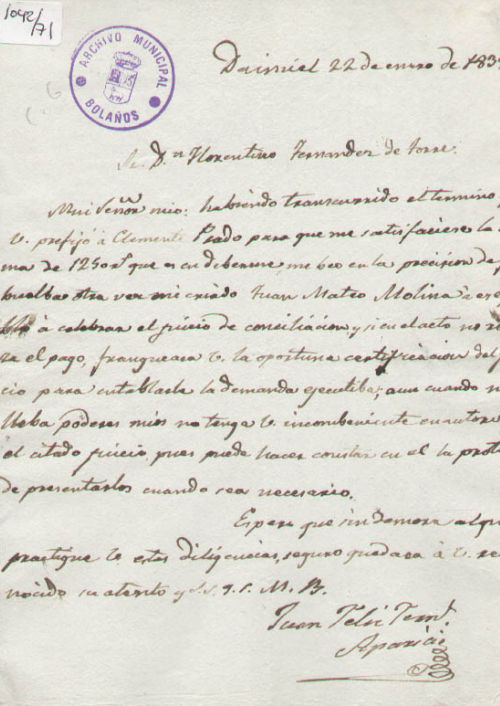 1042/71
ARCHIVO MUNICIPAL
BOLAÑOS
Daimiel 22 de enero de 183
Sr. Dn Florentino Fernandez de Torre.
Mui Señor mio: habiendo transcurrido el termino
V. prefijó á Clemente Prado para que me satisfaciese la
ma de 1250 rs. que es en deberme, me beo en la precision de
buelba otra vez mi criado Juan Mateo Molina á es
blo á celebrar el juicio de conciliacion, y si en el acto no
za el pago, franqueara V. la oportuna certificacion del
cio para entablarla la demanda egecutiba; aun cuando n
lleba poderes mios no tenga V. incombeniente en autor
el citado juicio, pues puede hacer constar en el la prot
de presentarlos cuando sea necesario.
Espero que sin demora al
practique V. estas diligencias, seguro quedara á V. re
nocido su atento y S. S. q. S. M. B.
Juan Felix
Aparici